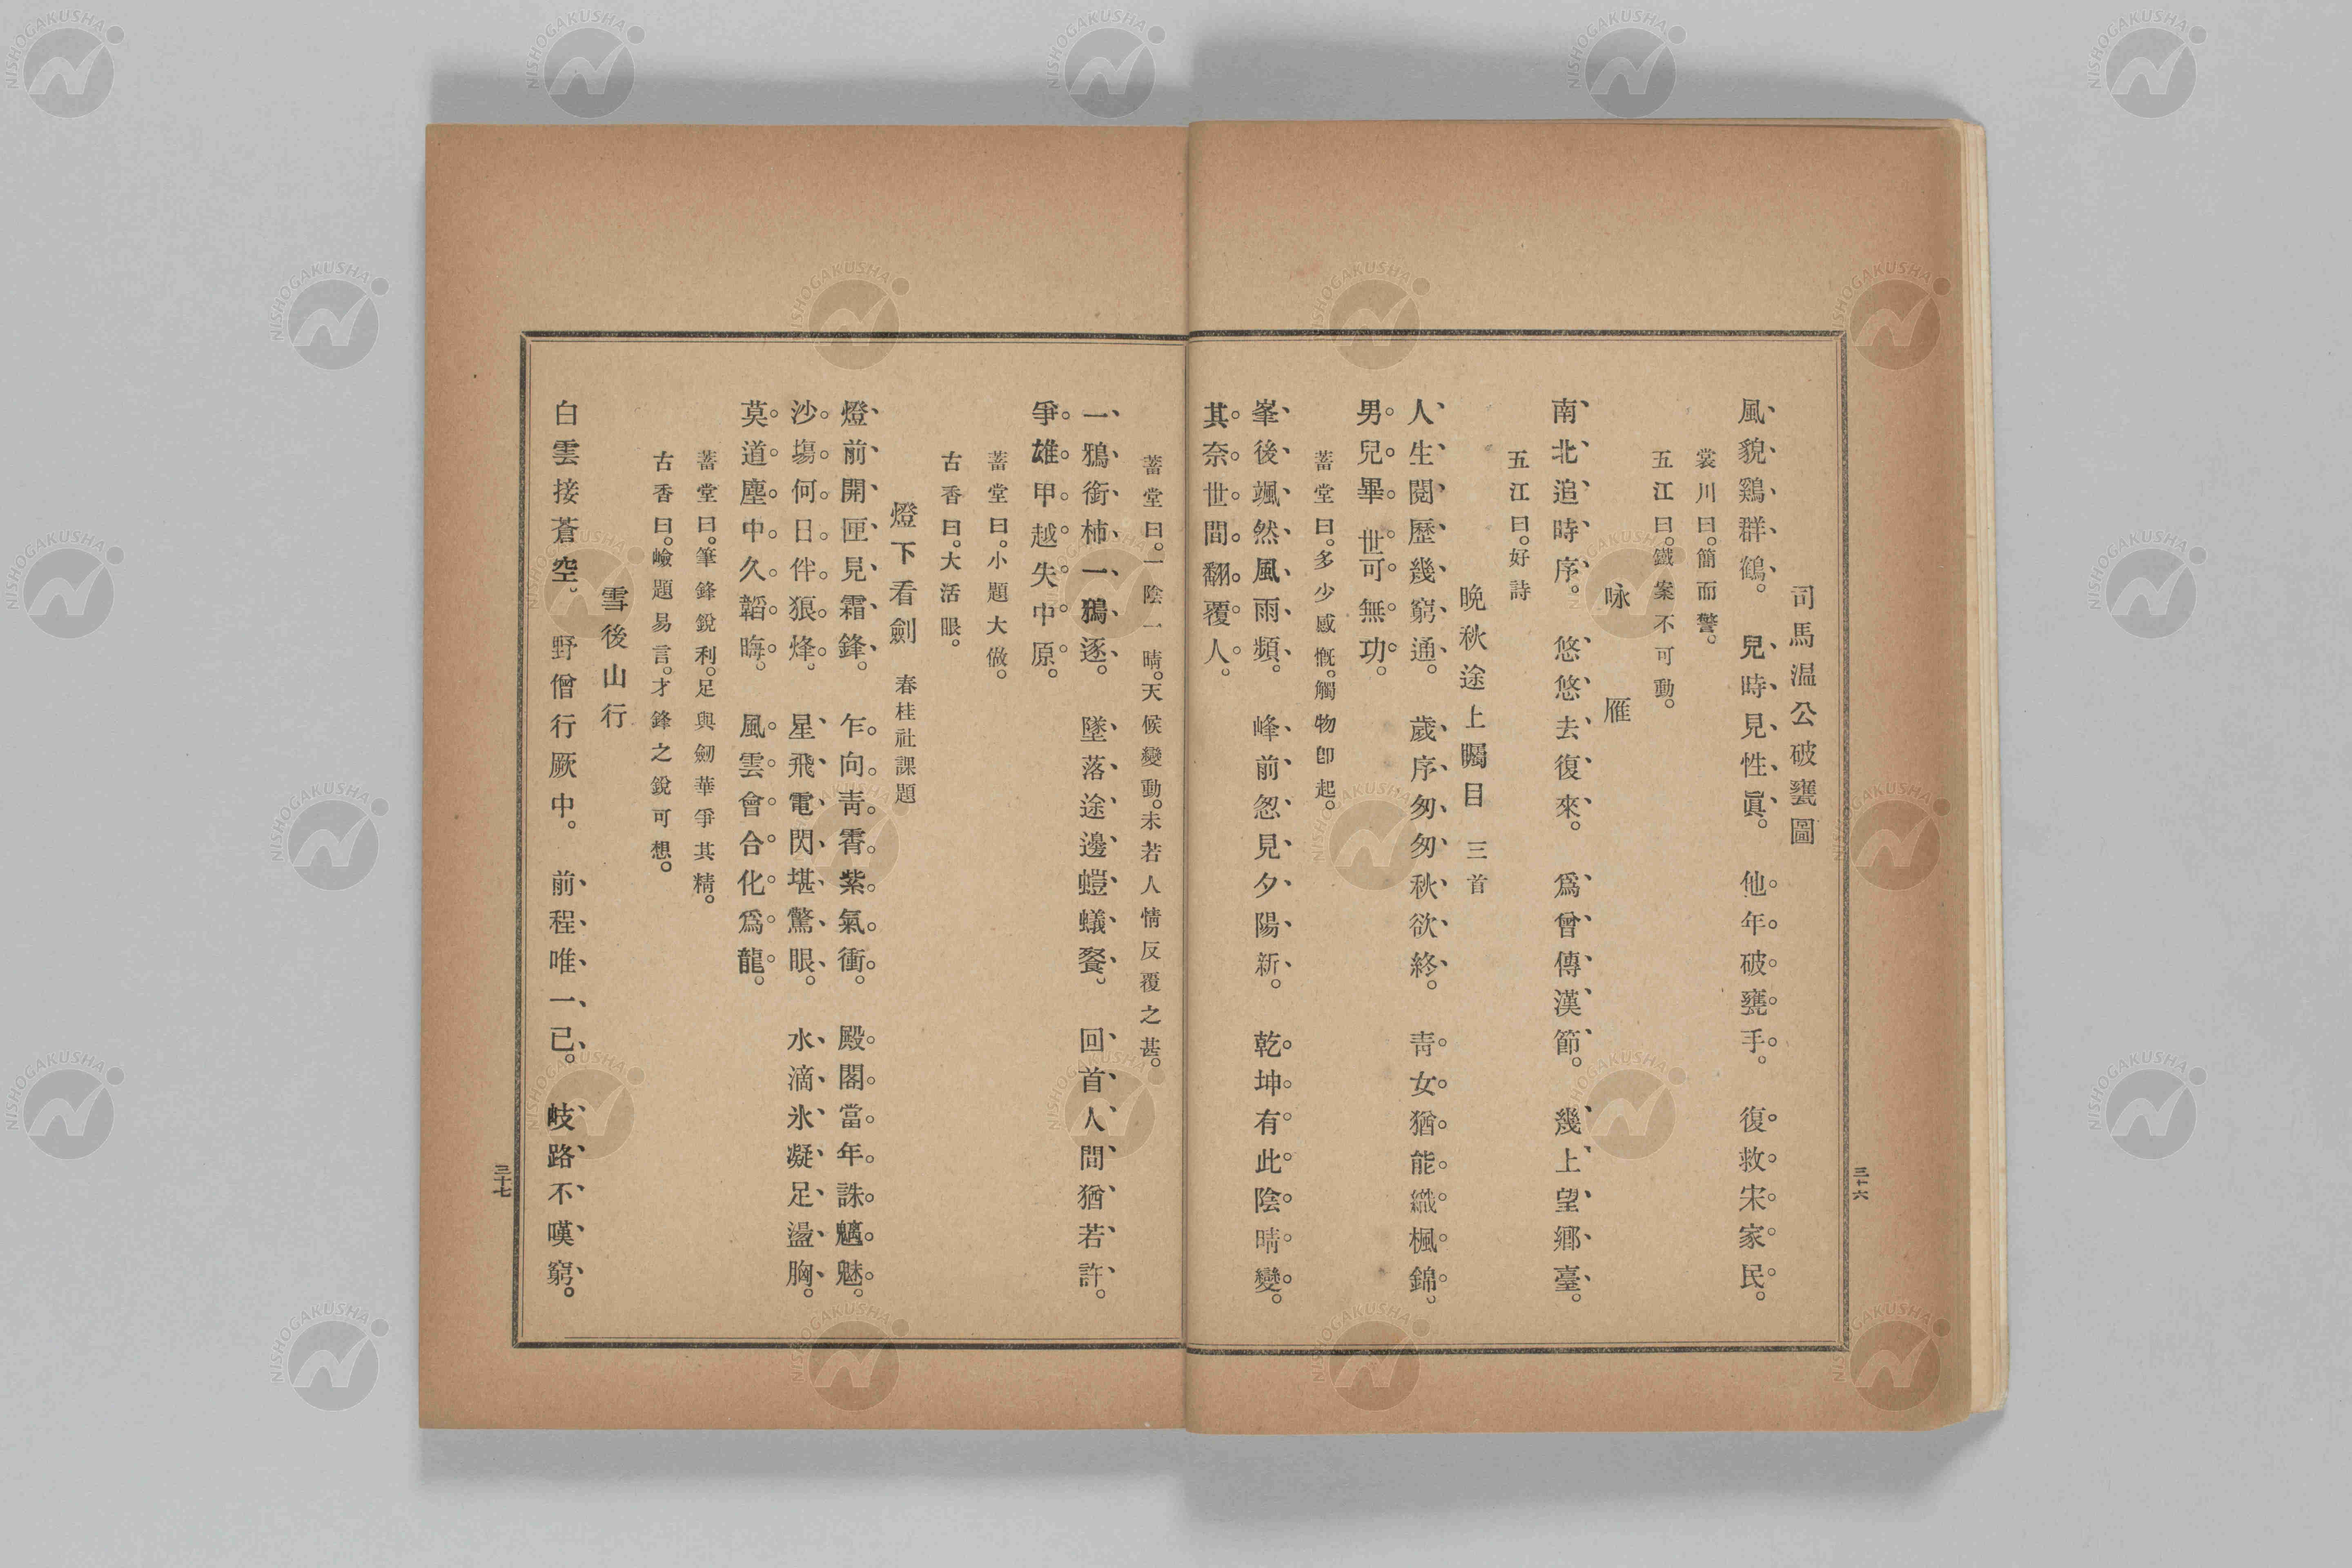 司馬温公破甕圖
風貌鷄群鶴。兒時見性眞。他年破甕手。復救宋家民。
裳川曰。簡而警。
五江曰。鐵案不可動。
咏雁
南北追時序。悠悠去復來。爲曾傳漢節。幾上望鄕臺。
五江曰。好詩
晩秋途上矚目 三首
人生閲歷幾窮通。歲序匆匆秋欲終。靑女猶能織楓錦。
男兒畢世可無功。
蓄堂曰。多少感慨。觸物卽起。
峯後颯然風雨頻。峰前忽見夕陽新。乾坤有此陰晴變。
其奈世間翻覆人。
三十六
蓄堂曰。一陰一晴。天候變動。未若人情反覆之甚。
一鴉銜柿一鴉逐。墜落途邊螘蟻餐。回首人間猶若許。
爭雄甲越失中原。
蓄堂曰。小題大做。
古香曰。大活眼。
燈下看劍 春桂社課題
燈前開匣見霜鋒。乍向靑霄紫氣衝。殿閣當年誅魑魅。
沙塲何日伴狼烽。星飛電閃堪驚眼。水滴氷凝足盪胸。
莫道塵中久韜晦。風雲會合化爲龍。
蓄堂曰。筆鋒銳利。足與劒華爭其精。
古香曰。嶮題易言。才鋒之銳可想。
雪後山行
白雲接蒼空。野僧行厥中。前程唯一已。岐路不嘆窮。
三十七
NISHOGAKUSHA